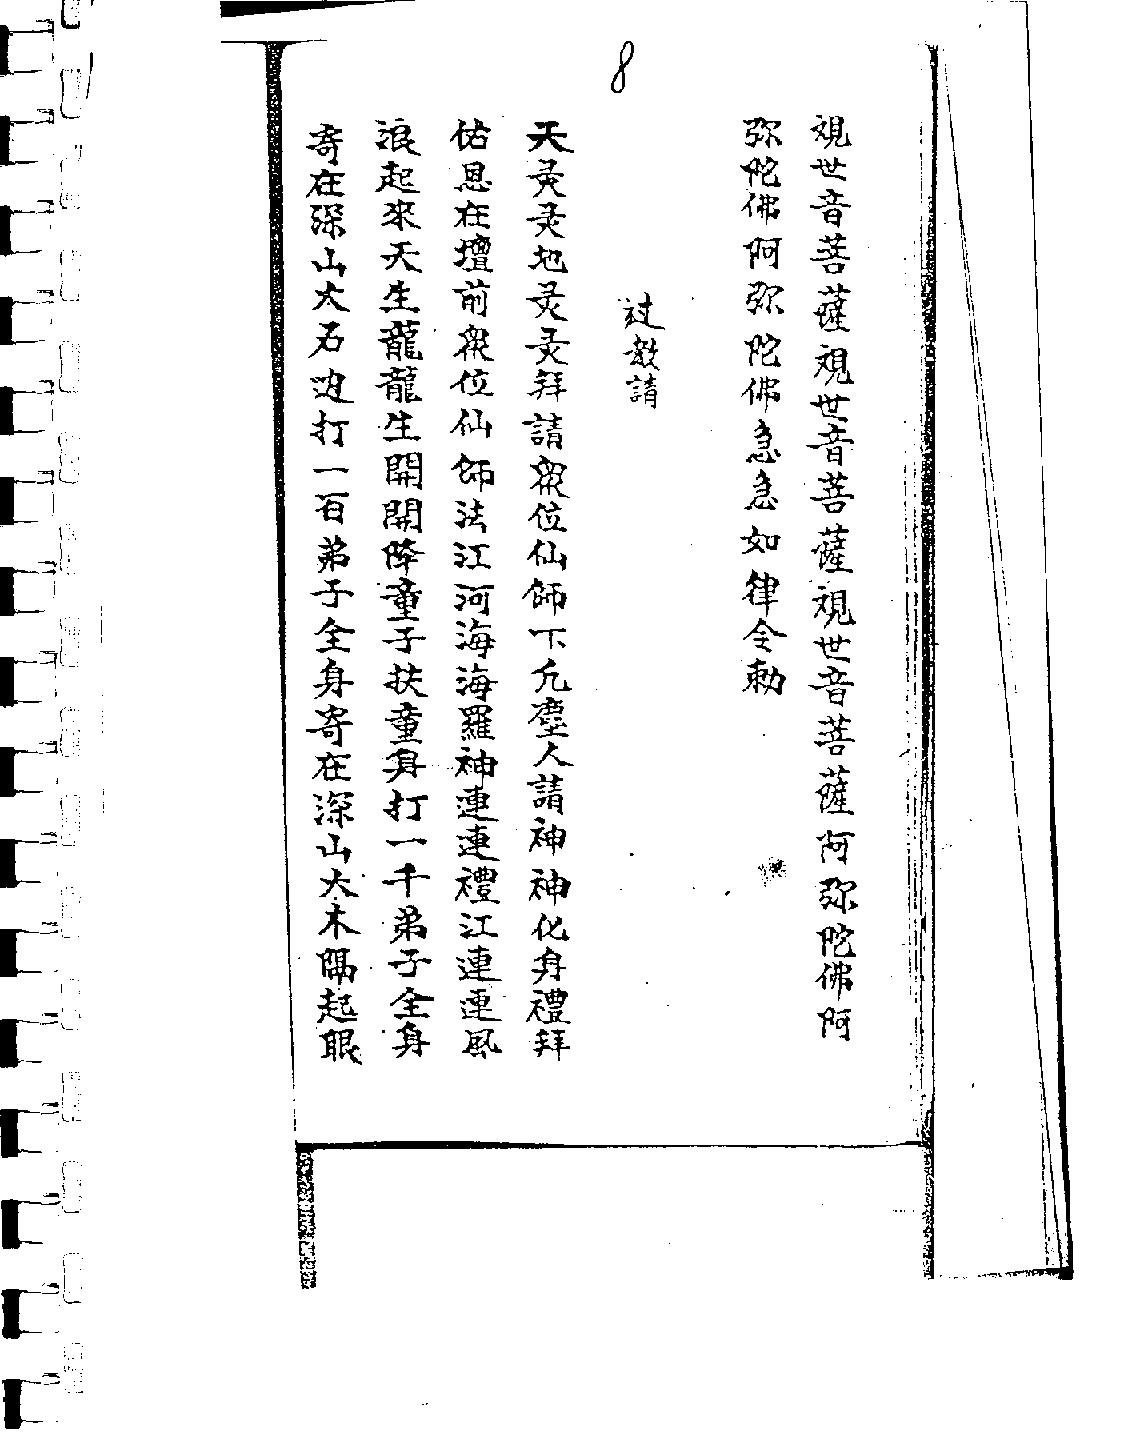 8
視世音菩薩視世音菩薩視世音菩薩阿弥陀佛阿
弥陀佛阿弥陀佛急急如律令勅
过教請
天灵灵地灵灵拜請眾位仙師下凢塵人請神神化身禮拜
佑恩在壇前眾位仙師法江河海海羅神連連禮江連連風
浪起來天生龍龍生開開降童子扶童身打一千弟子全身
寄在深山大石边打一百弟子全身寄在深山大木隔起眼